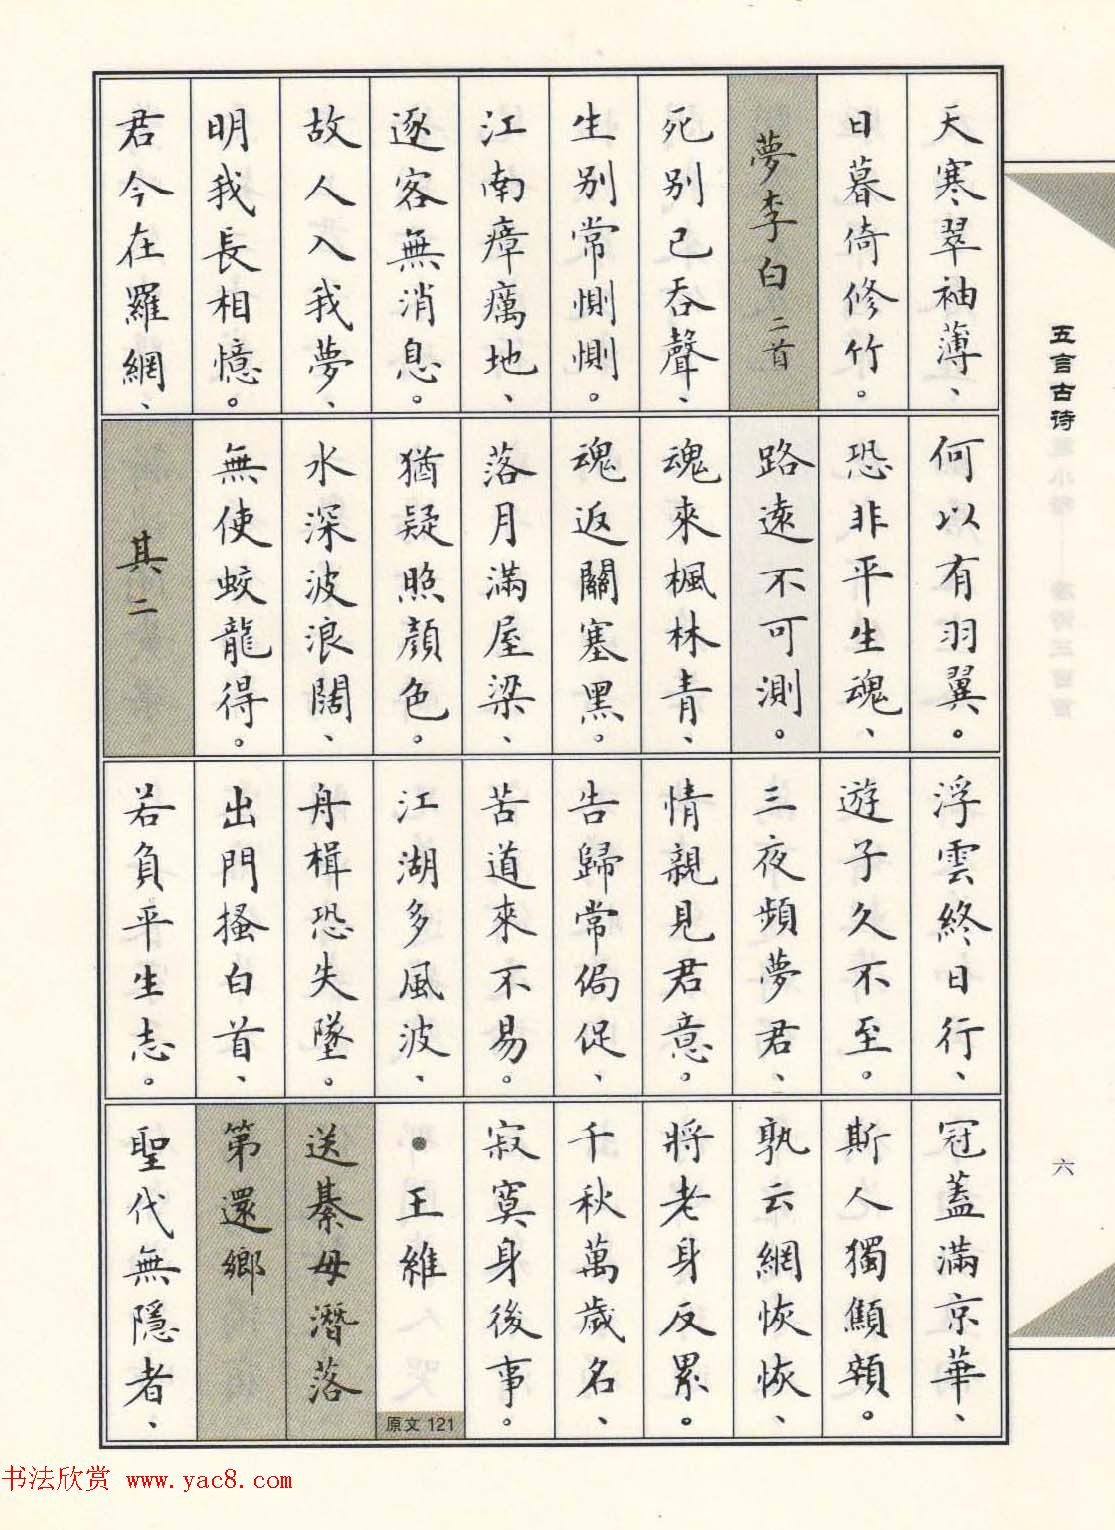 五言古诗
天寒翠袖薄、
日暮倚修竹。
夢李白 二首
死別已吞聲、
生別常惻惻。
江南瘴癘地、
逐客無消息。
故人入我夢、
明我長相憶。
君今在羅網、
何以有羽翼。
恐非平生魂、
路遠不可測。
魂來楓林青、
魂返關塞黑。
落月滿屋梁、
猶疑照顏色。
水深波浪闊、
無使蛟龍得。
其二
浮雲終日行、
遊子久不至。
三夜頻夢君、
情親見君意。
告歸常侷促、
苦道來不易。
江湖多風波、
舟楫恐失墜。
出門搔白首、
若負平生志。
冠蓋滿京華、
斯人獨顦顇。
孰云網恢恢、
將老身反累。
千秋萬歲名、
寂寞身後事。
●王維
原文 121
送綦母潛落
第還鄉
聖代無隱者、
六
书法欣赏 www.yac8.com